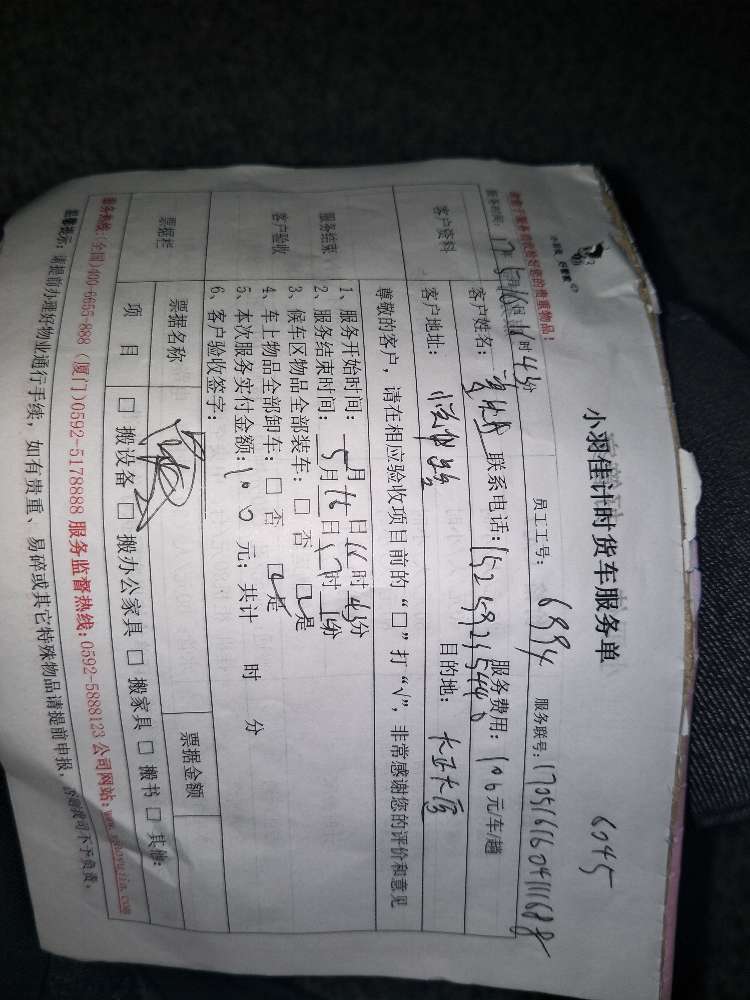 6045
小羽佳计时货车服务单
员工工号：6994 服务联号：
服务时间：17年5月16日16时45分
客户资料
客户姓名： 联系电话： 服务费用：100元/车/趟
客户地址： 目的地：
尊敬的客户，请在相应验收项目前的“□”打“√”，非常感谢您的评价和意见
服务结束
客户验收
1、服务开始时间：5月16日16时45分
2、服务结束时间：5月16日17时 分
3、候车区物品全部装车：□ 否 ☑是
4、车上物品全部卸车：□ 否 ☑是
5、本次服务实付金额：100元；共计 时 分
6、客户验收签字：
票据栏
票据名称 票据金额
项目 □ 搬设备 □ 搬办公家具 □ 搬家具 □ 搬书 □ 其他：
服务热线：(全国)400-6655-888 (厦门)0592-5178888 服务监督热线：0592-5888123 公司网站：www.xiaoyujia.com
温馨提示：请提前办理好物业通行手续，如有贵重、易碎或其它特殊物品请提前申报，否则我司不予负责。